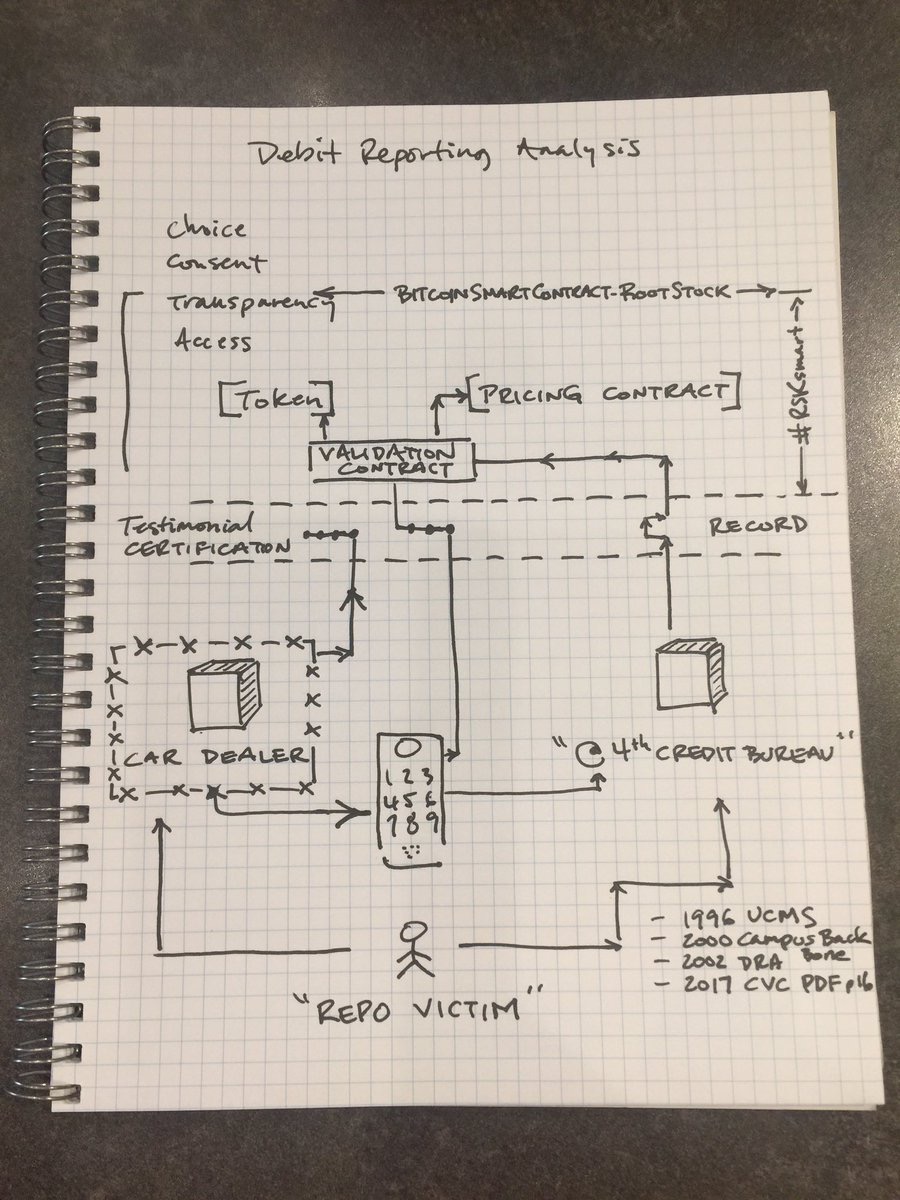 Debit Reporting Analysis
Choice
Consent
Transparency
BITCOINSMARTCONTRACT-ROOTSTOCK
Access
#RSKsmart
[Token]
[PRICING CONTRACT]
VALIDATION
CONTRACT
Testimonial
CERTIFICATION
RECORD
CAR DEALER
1 2 3
4 5 6
7 8 9
"@ 4th CREDIT BUREAU"
- 1996 UCMS
- 2000 Campus Back
Bone
- 2002 DRA
- 2017 CVC PDF p16
"REPO VICTIM"